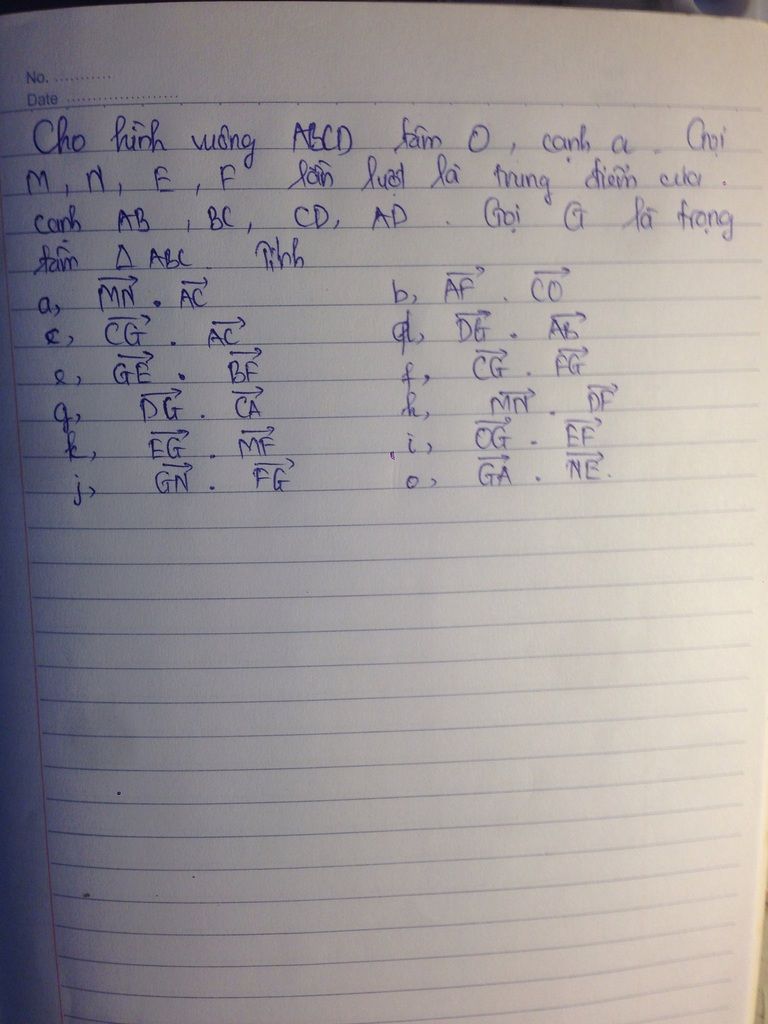 No. ...........
Date ........................
Cho hình vuông ABCD tâm O, cạnh a. Gọi
M, N, E, F lần lượt là trung điểm của.
cạnh AB, BC, CD, AD. Gọi G là trọng
tâm Δ ABC. Tính
a, $\overrightarrow{MN}$ . $\overrightarrow{AC}$ b, $\overrightarrow{AF}$ . $\overrightarrow{CO}$
c, $\overrightarrow{CG}$ . $\overrightarrow{AC}$ d, $\overrightarrow{DG}$ . $\overrightarrow{AB}$
e, $\overrightarrow{GE}$ . $\overrightarrow{BF}$ f, $\overrightarrow{CG}$ . $\overrightarrow{FG}$
g, $\overrightarrow{DG}$ . $\overrightarrow{CA}$ h, $\overrightarrow{MN}$ . $\overrightarrow{DF}$
k, $\overrightarrow{EG}$ . $\overrightarrow{MF}$ i, $\overrightarrow{OG}$ . $\overrightarrow{EF}$
j, $\overrightarrow{GN}$ . $\overrightarrow{FG}$ o, $\overrightarrow{GA}$ . $\overrightarrow{NE}$.